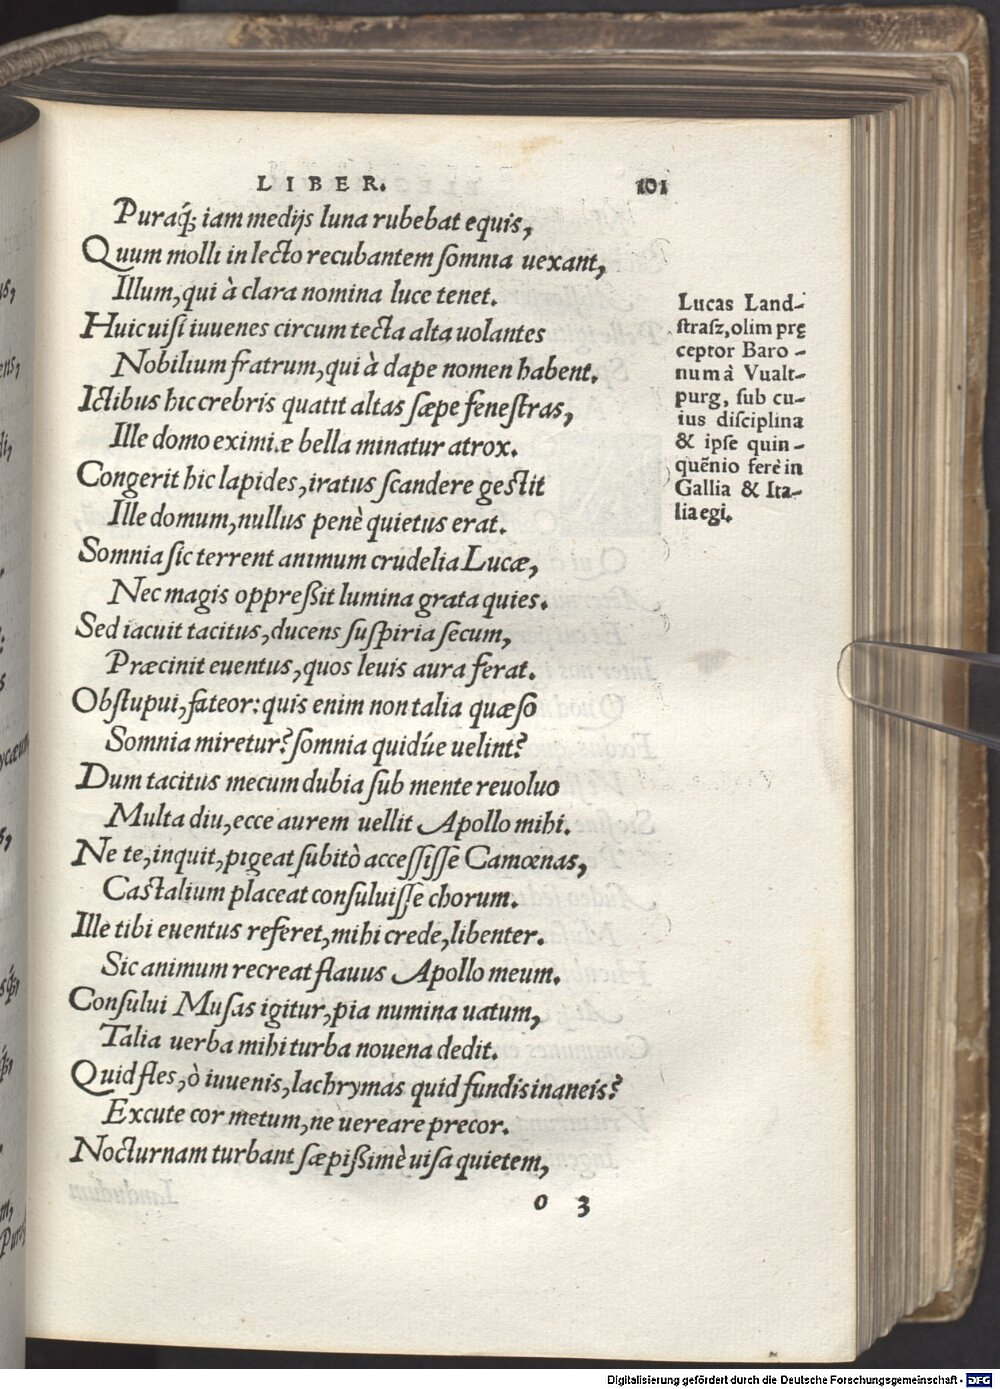 LIBER. 101
Puraq́; iam medijs luna rubebat equis,
Quum molli in lecto recubantem ſomnia uexant,
Illum, qui à clara nomina luce tenet.
Huic uiſi iuuenes circum tecta alta uolantes
Nobilium fratrum, qui à dape nomen habent.
Ictibus hic crebris quatit altas ſæpe feneſtras,
Ille domo eximiæ bella minatur atrox.
Congerit hic lapides, iratus ſcandere geſtit
Ille domum, nullus penè quietus erat.
Somnia ſic terrent animum crudelia Lucæ,
Nec magis oppreßit lumina grata quies.
Sed iacuit tacitus, ducens ſuſpiria ſecum,
Præcinit euentus, quos leuis aura ferat.
Obſtupui, fateor: quis enim non talia quæſo
Somnia miretur? ſomnia quidúe uelint?
Dum tacitus mecum dubia ſub mente reuoluo
Multa diu, ecce aurem uellit Apollo mihi.
Ne te, inquit, pigeat ſubitò acceſſiſſe Camœnas,
Caſtalium placeat conſuluiſſe chorum.
Ille tibi euentus referet, mihi crede, libenter.
Sic animum recreat flauus Apollo meum.
Conſului Muſas igitur, pia numina uatum,
Talia uerba mihi turba nouena dedit.
Quid fles, ò iuuenis, lachrymas quid fundis inaneis?
Excute cor metum, ne uereare precor.
Nocturnam turbant ſæpißimè uiſa quietem,
o 3
Lucas Land-
ſtraſz, olim prę
ceptor Baro-
num à Vualt-
purg, ſub cu-
ius diſciplina
& ipſe quin-
quẽnio ferè in
Gallia & Ita-
lia egi.
Digitalisierung gefördert durch die Deutsche Forschungsgemeinschaft - DFG